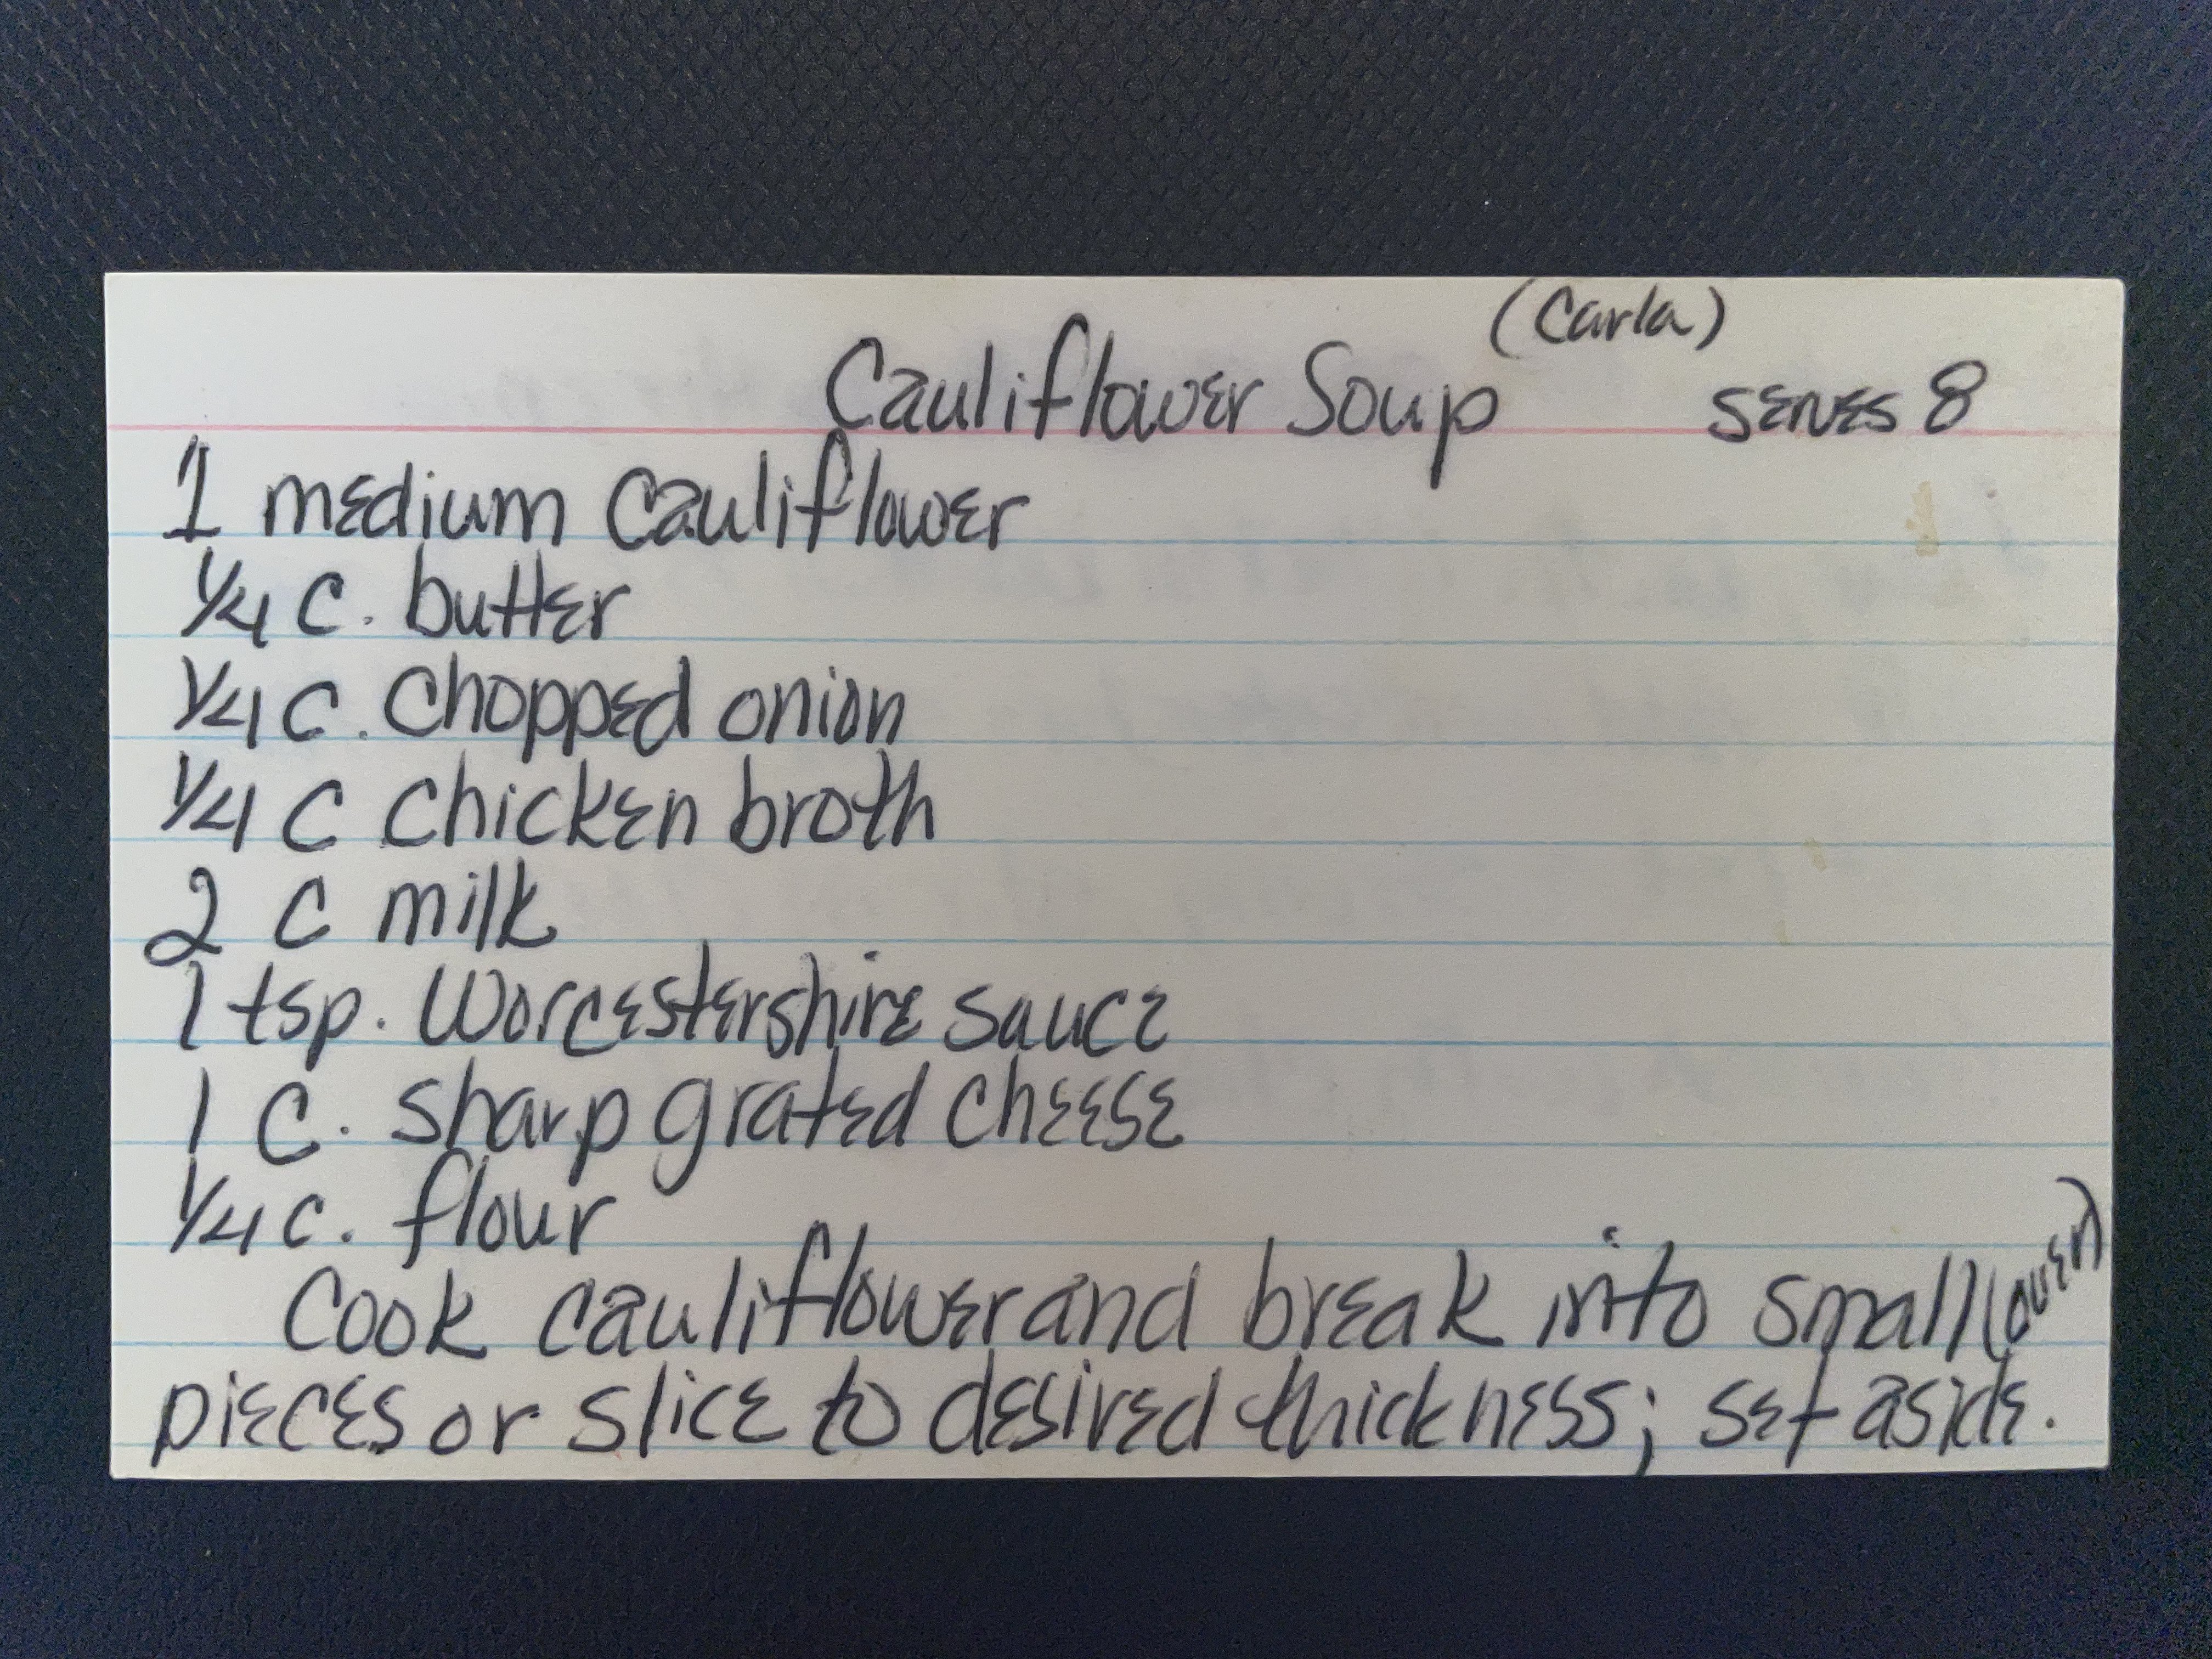 (Carla)
Cauliflower Soup serves 8
1 medium cauliflower
1/4 c. butter
1/4 c. chopped onion
1/4 c chicken broth
2 c milk
1 tsp. Worcestershire sauce
1 c. sharp grated cheese
1/4 c. flour
Cook cauliflower and break into small (over)
pieces or slice to desired thickness; set aside.